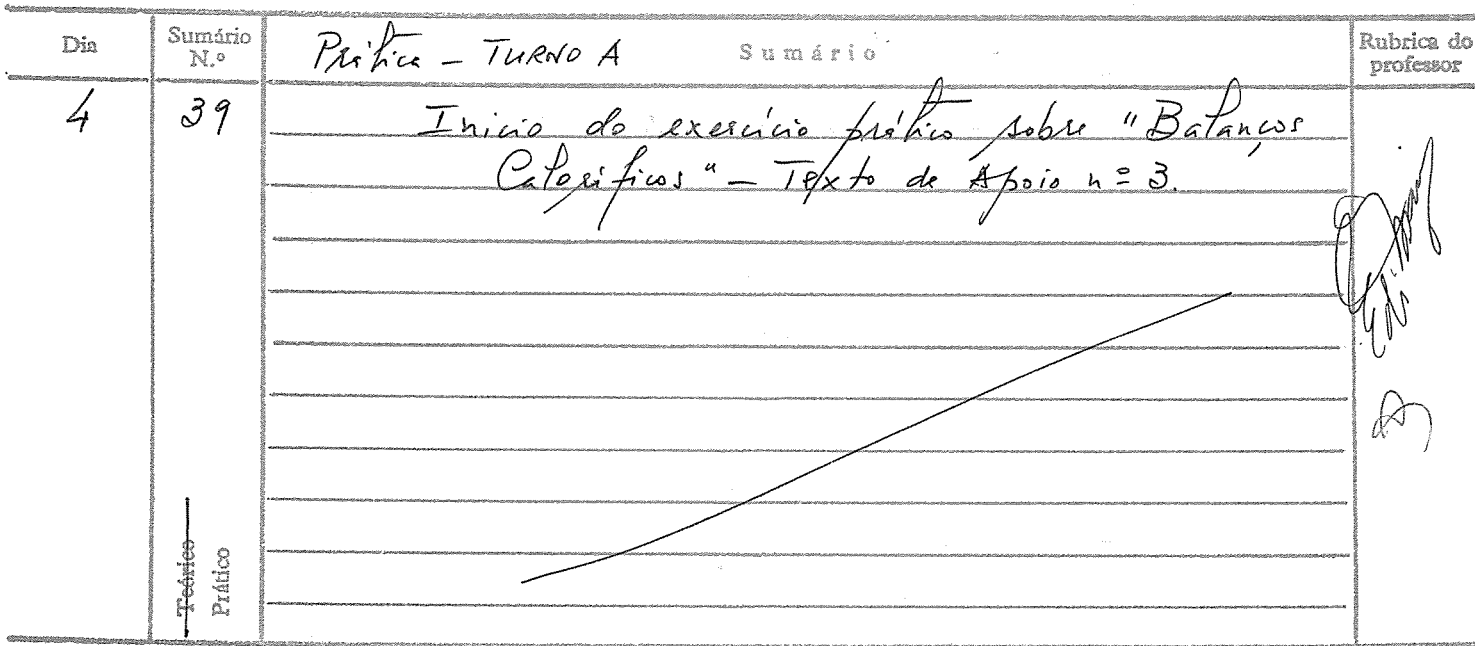 Dia
Sumário
N.º
Prática - TURNO A
Sumário
Rubrica do
professor
4
39
Inicio do exercício prático sobre "Balanços
Caloríficos" - Texto de Apoio nº 3.
Teórico
Prático